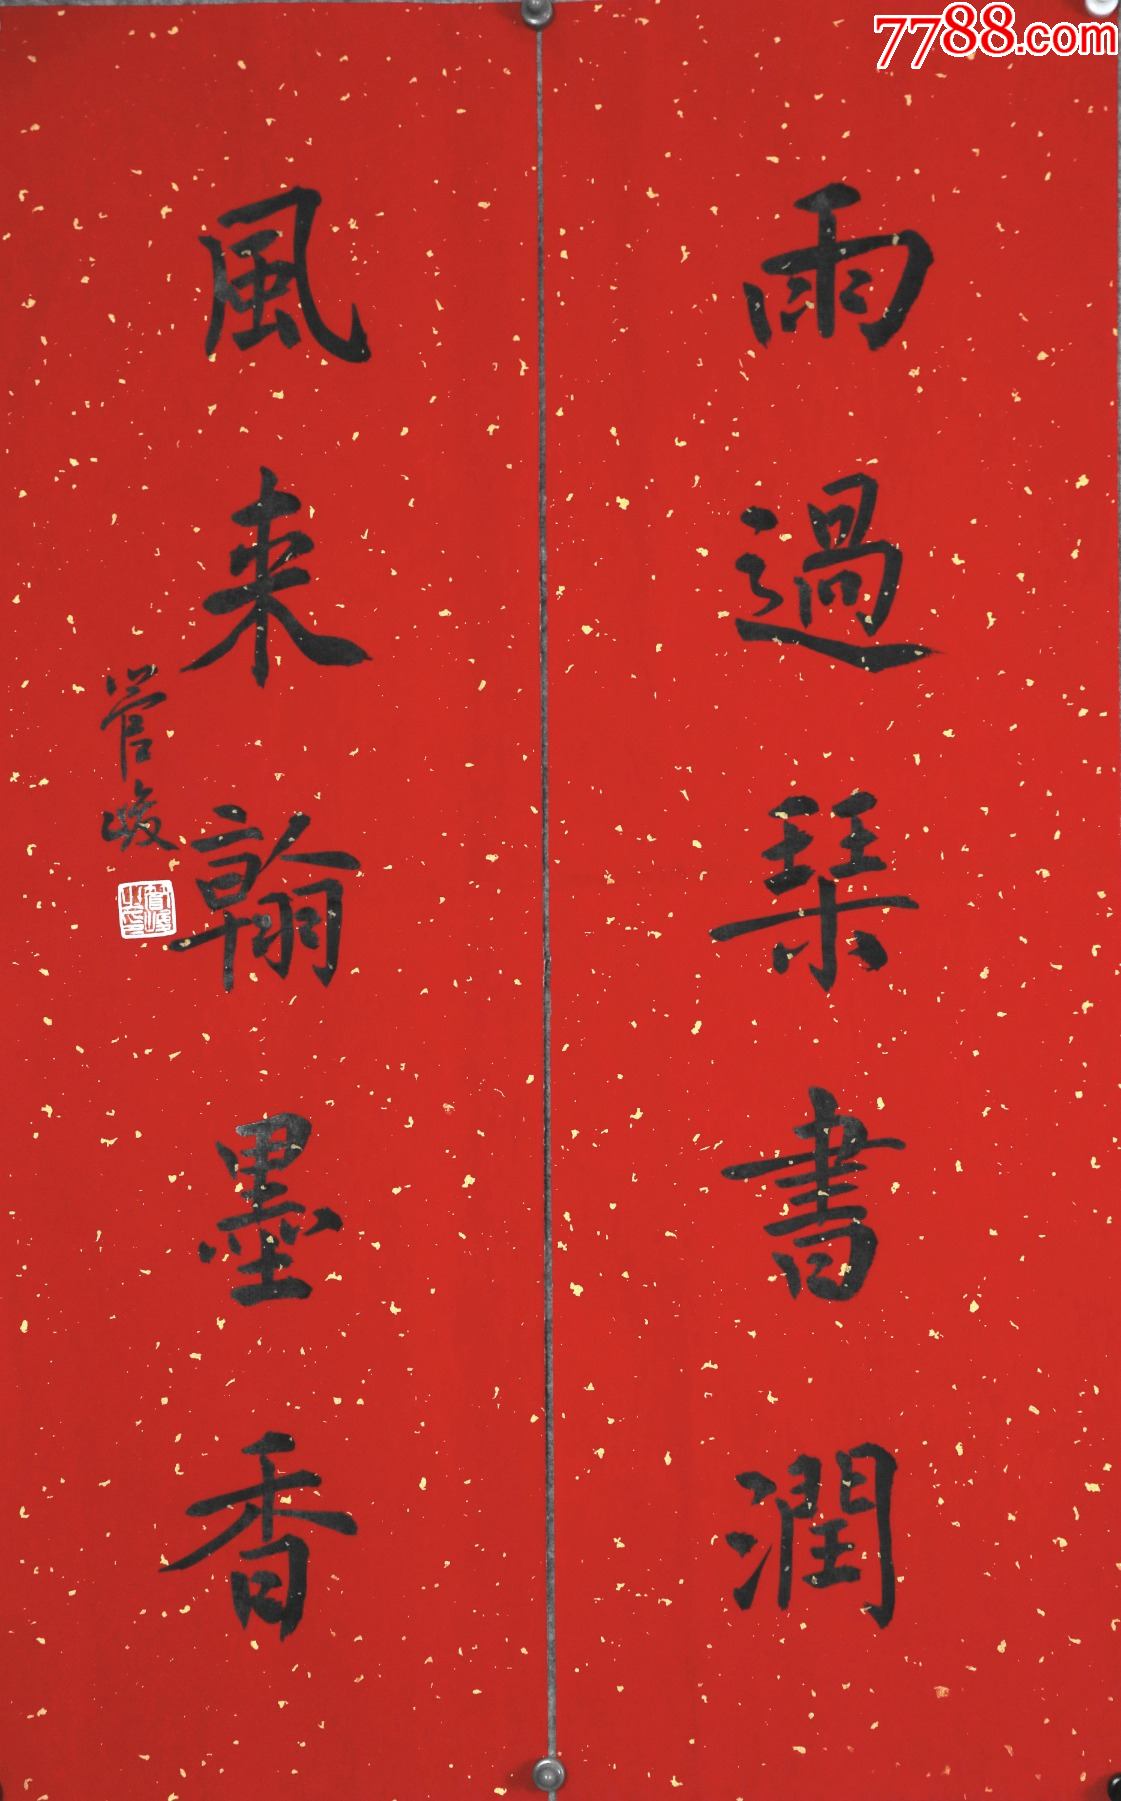 雨過琹書潤
風来翰墨香
管峻
7788.com